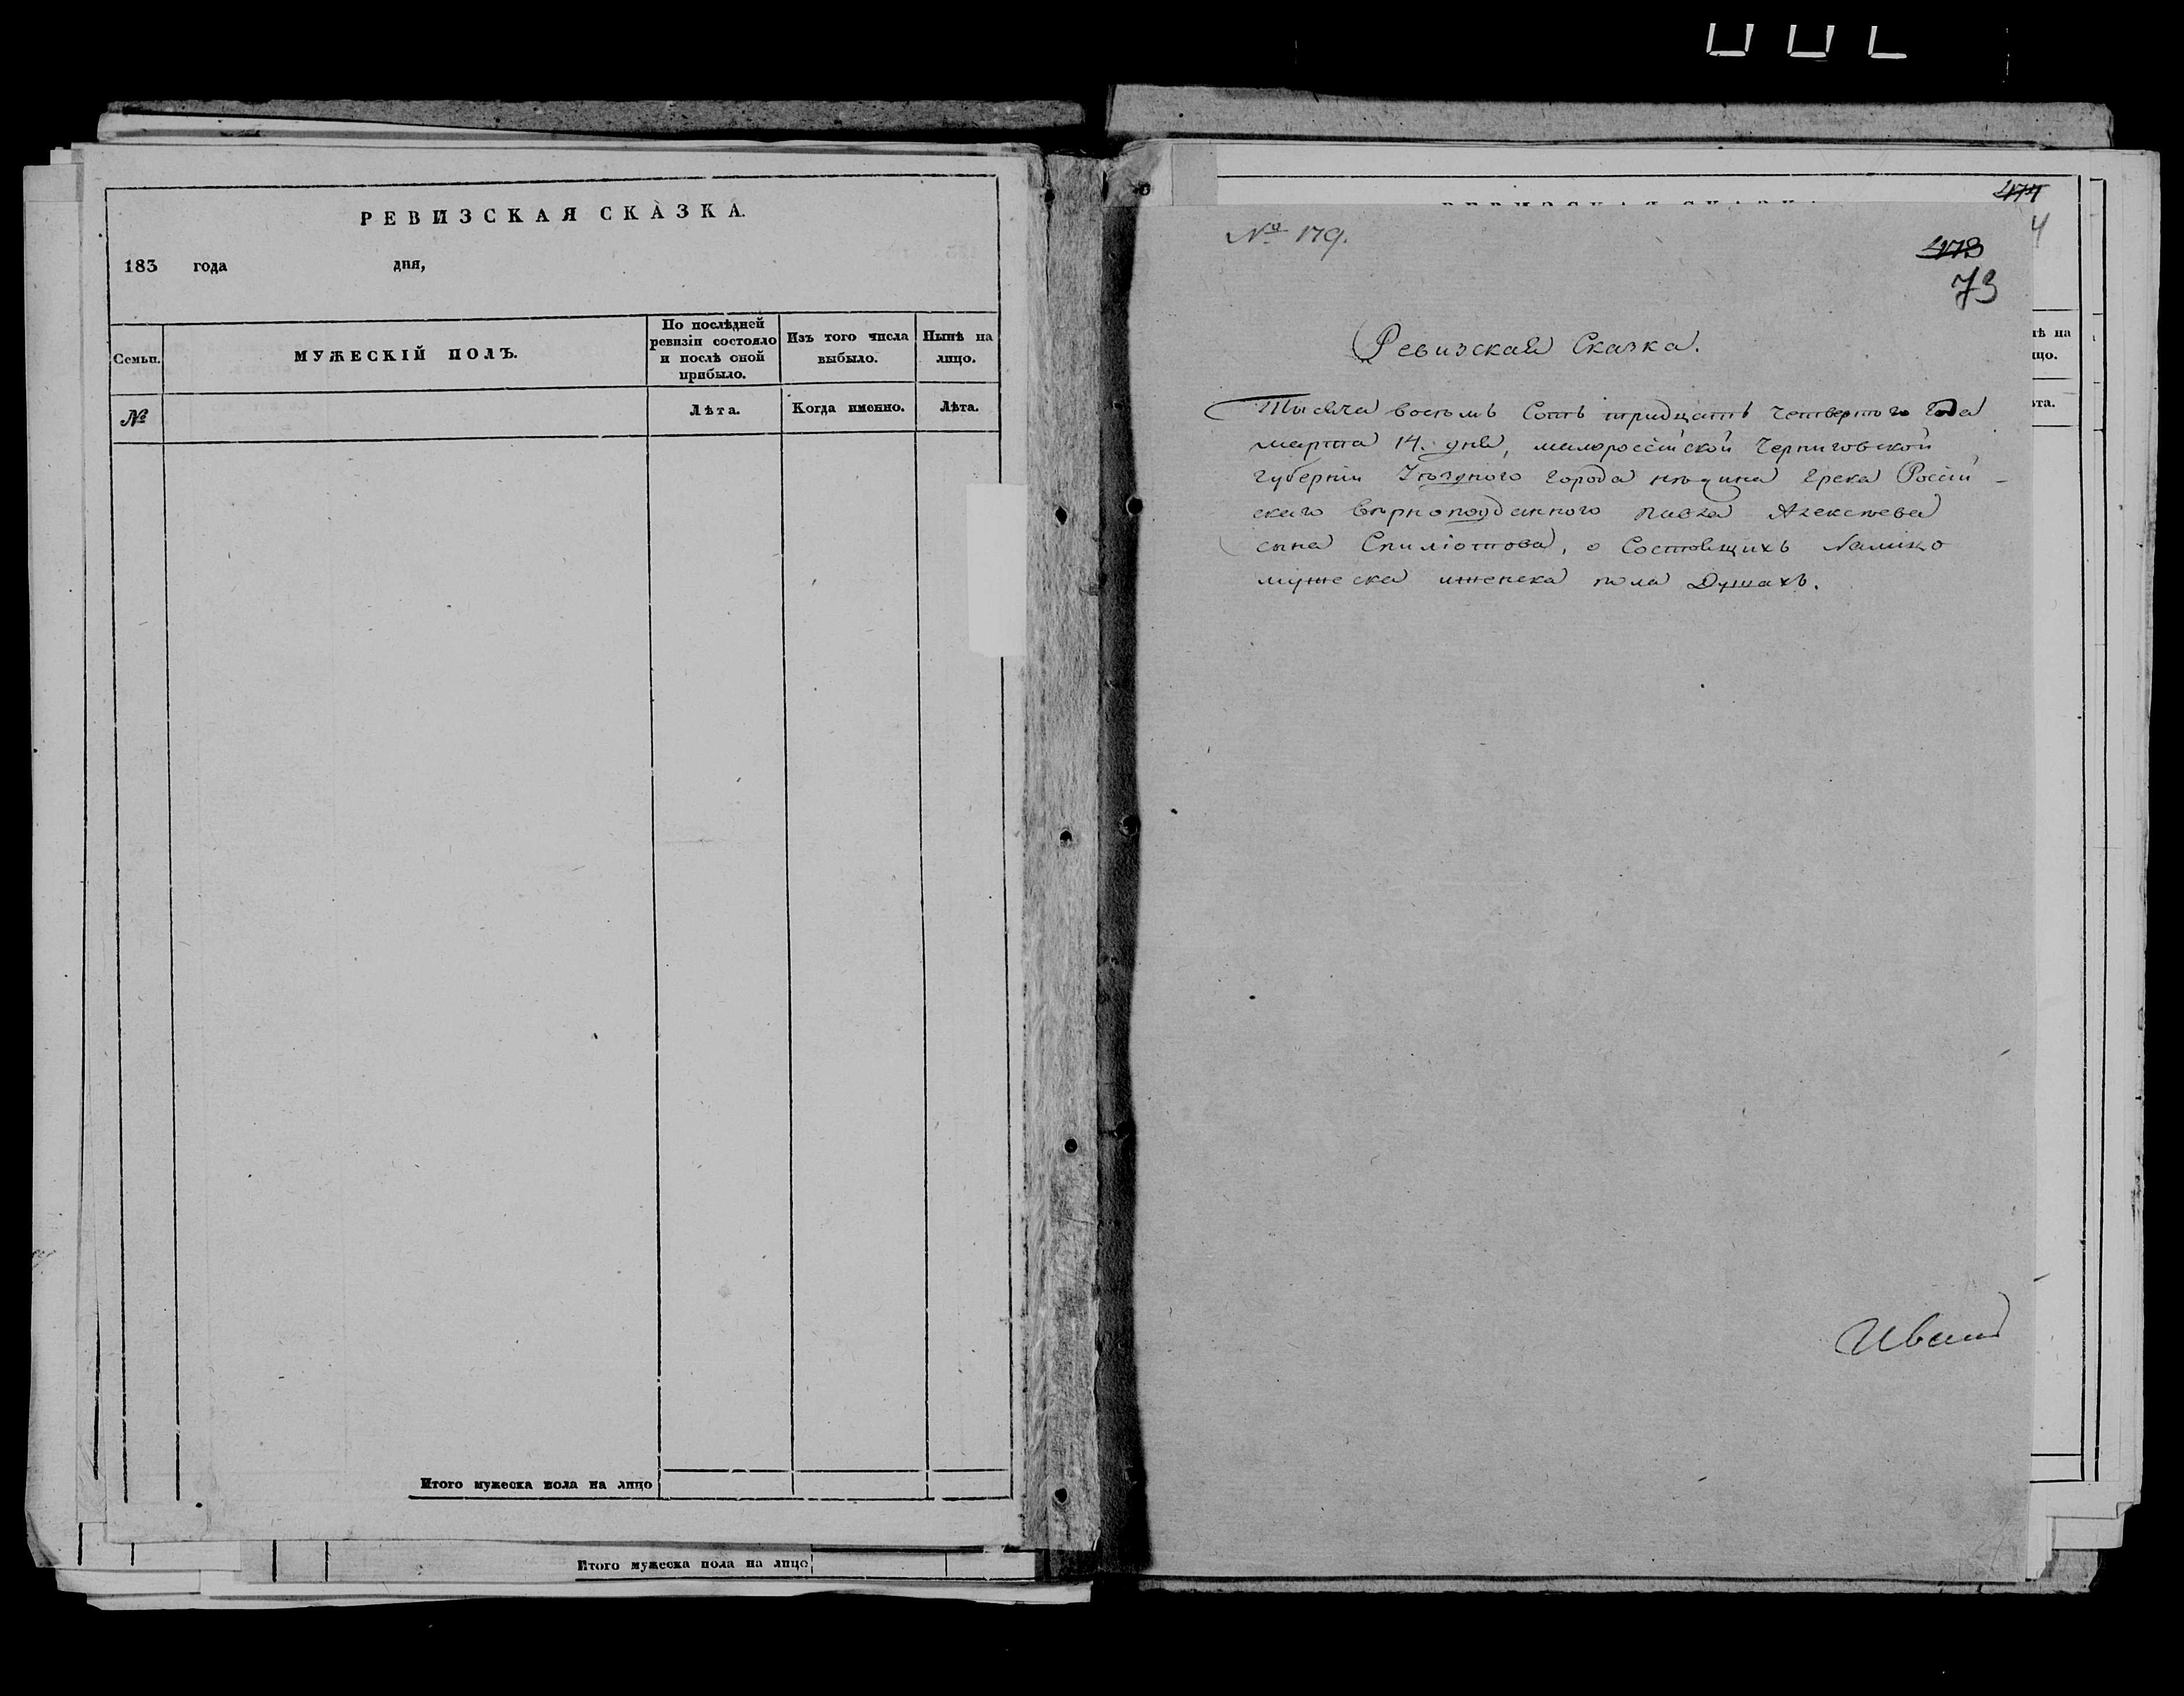 РЕВИЗСКАЯ СКАЗКА.
183 года дня,
Семьи. МУЖЕСКІЙ ПОЛЪ. По послѣдней ревизіи состояло и послѣ оной прибыло. Изъ того числа выбыло. Нынѣ на лицо.
№ Лѣта. Когда именно. Лѣта.
Итого мужеска пола на лицо
Итого мужеска пола на лицо
№ 179.
473
73
Ревизская Сказка.
Тысяча восемь Сотъ тридцать четвертого года
марта 14. дня, малороссійской Черниговской
губерніи Уѣздного города нѣжина Грека Россій-
скаго вѣрноподданного павла Алексѣева
сына Спиліотова, о Состоящихъ налицо
мужеска иженска пола Душахъ.
Иванъ
474
4
нѣ на
цо.
ѣта.